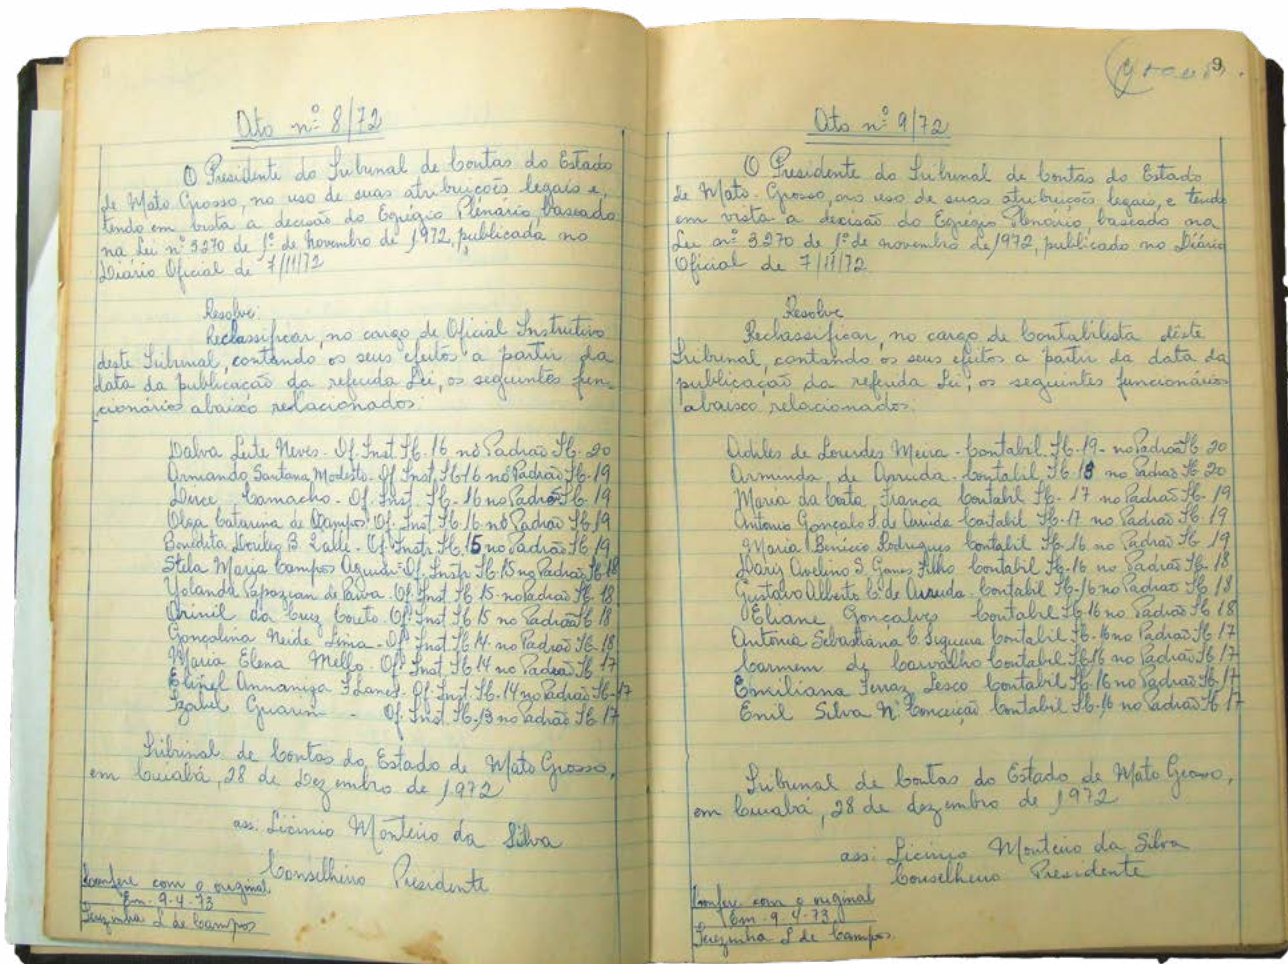 Ato nº 8/72
O Presidente do Tribunal de Contas do Estado
de Mato Grosso, no uso de suas atribuições legais e,
tendo em vista a decisão do Egrégio Plenário, baseado
na Lei nº 3270 de 1º de novembro de 1972, publicada no
Diário Oficial de 7/11/72
Resolve:
Reclassificar, no cargo de Oficial Instrutivo
deste Tribunal, contando os seus efeitos a partir da
data da publicação da referida Lei, os seguintes fun-
cionários abaixo relacionados:
Dalva Leite Neves - Of. Inst. Tc. 16 no Padrão Tc. 20
Armando Santana Modesto - Of. Inst. Tc. 16 no Padrão Tc. 19
Dirce Camacho - Of. Inst. Tc. 16 no Padrão Tc. 19
Olga Catarina de Campos Of. Inst. Tc. 16 no Padrão Tc. 19
Benedita B. Of. Instr. Tc. 15 no Padrão Tc. 19
Stela Maria Campos Aguiar - Of. Instr. Tc. 15 no Padrão Tc. 18
Yolanda Papazian de Paiva - Of. Inst. Tc. 15 no Padrão Tc. 18
da Cruz Couto Of. Inst. Tc. 15 no Padrão Tc. 18
Gonçalina Neide Lima - Of. Inst. Tc. 14 no Padrão Tc. 18
Maria Elena Mello - Of. Inst. Tc. 14 no Padrão Tc. 17
Of. Inst. Tc. 14 no Padrão Tc. 17
Izabel Guarin - Of. Inst. Tc. 13 no Padrão Tc. 17
Tribunal de Contas do Estado de Mato Grosso,
em Cuiabá, 28 de Dezembro de 1972
ass: Licinio Monteiro da Silva
Conselheiro Presidente
Confere com o original
Em - 9-4-73
Terezinha L de Campos
9
Ato nº 9/72
O Presidente do Tribunal de Contas do Estado
de Mato Grosso, no uso de suas atribuições legais, e tendo
em vista a decisão do Egrégio Plenário, baseado na
Lei nº 3.270 de 1º de novembro de 1972, publicado no Diário
Oficial de 7/11/72
Resolve
Reclassificar, no cargo de Contabilista dêste
Tribunal, contando os seus efeitos a partir da data da
publicação da referida Lei, os seguintes funcionários
abaixo relacionados:
de Lourdes Meira - Contabil. Tc. 19 - no Padrão Tc. 20
Arminda de Arruda - Contabil Tc. 18 no Padrão Tc. 20
Maria da Costa França Contabil Tc. 17 no Padrão Tc. 19
Antonio Gonçalo S. de Arruda Contabil Tc. 17 no Padrão Tc. 19
Maria Benício Rodrigues Contabil Tc. 16 no Padrão Tc. 19
Avelino S. Gomes Filho Contabil Tc. 16 no Padrão Tc. 18
Gustavo Alberto C. de Arruda - Contabil Tc. 16 no Padrão Tc. 18
Eliane Gonçalves Contabil Tc. 16 no Padrão Tc. 18
Antonia Sebastiana C. Siqueira Contabil Tc. 16 no Padrão Tc. 17
Carmem de Carvalho Contabil Tc. 16 no Padrão Tc. 17
Emiliana Ferraz Lesco Contabil Tc. 16 no Padrão Tc. 17
Enil Silva N. Conceição Contabil Tc. 16 no Padrão Tc. 17
Tribunal de Contas do Estado de Mato Grosso,
em Cuiabá, 28 de dezembro de 1972
ass: Licinio Monteiro da Silva
Conselheiro Presidente
Confere com o original
Em - 9-4-73
Terezinha L de Campos